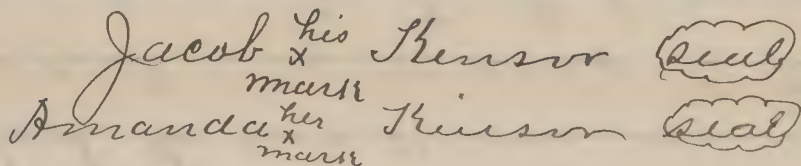 Jacob his x mark Kinsor seal
Amanda her x mark Kinsor seal